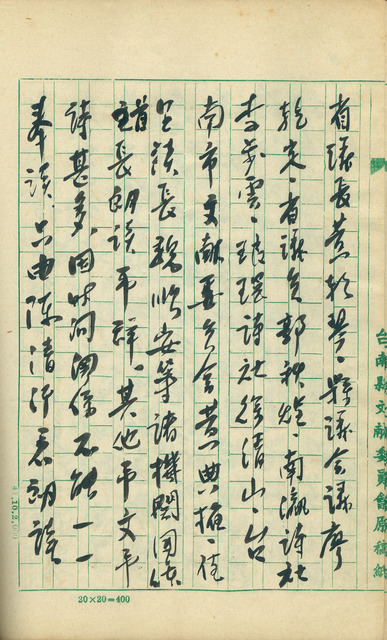 省議長黃朝琴、縣議會議廖
乾定、省議員郭秋煌、南瀛詩社
李步雲、琅環詩社徐清山、台
南市文獻委員會黃典權、佳
里鎮長魏順安等諸機關團体
首長朗讀弔辭。其他弔文弔
詩甚多、因時間關係不能一一
奉讀、只由陳清汗君朗讀。
台南縣文獻委員會原稿紙
20×20=400